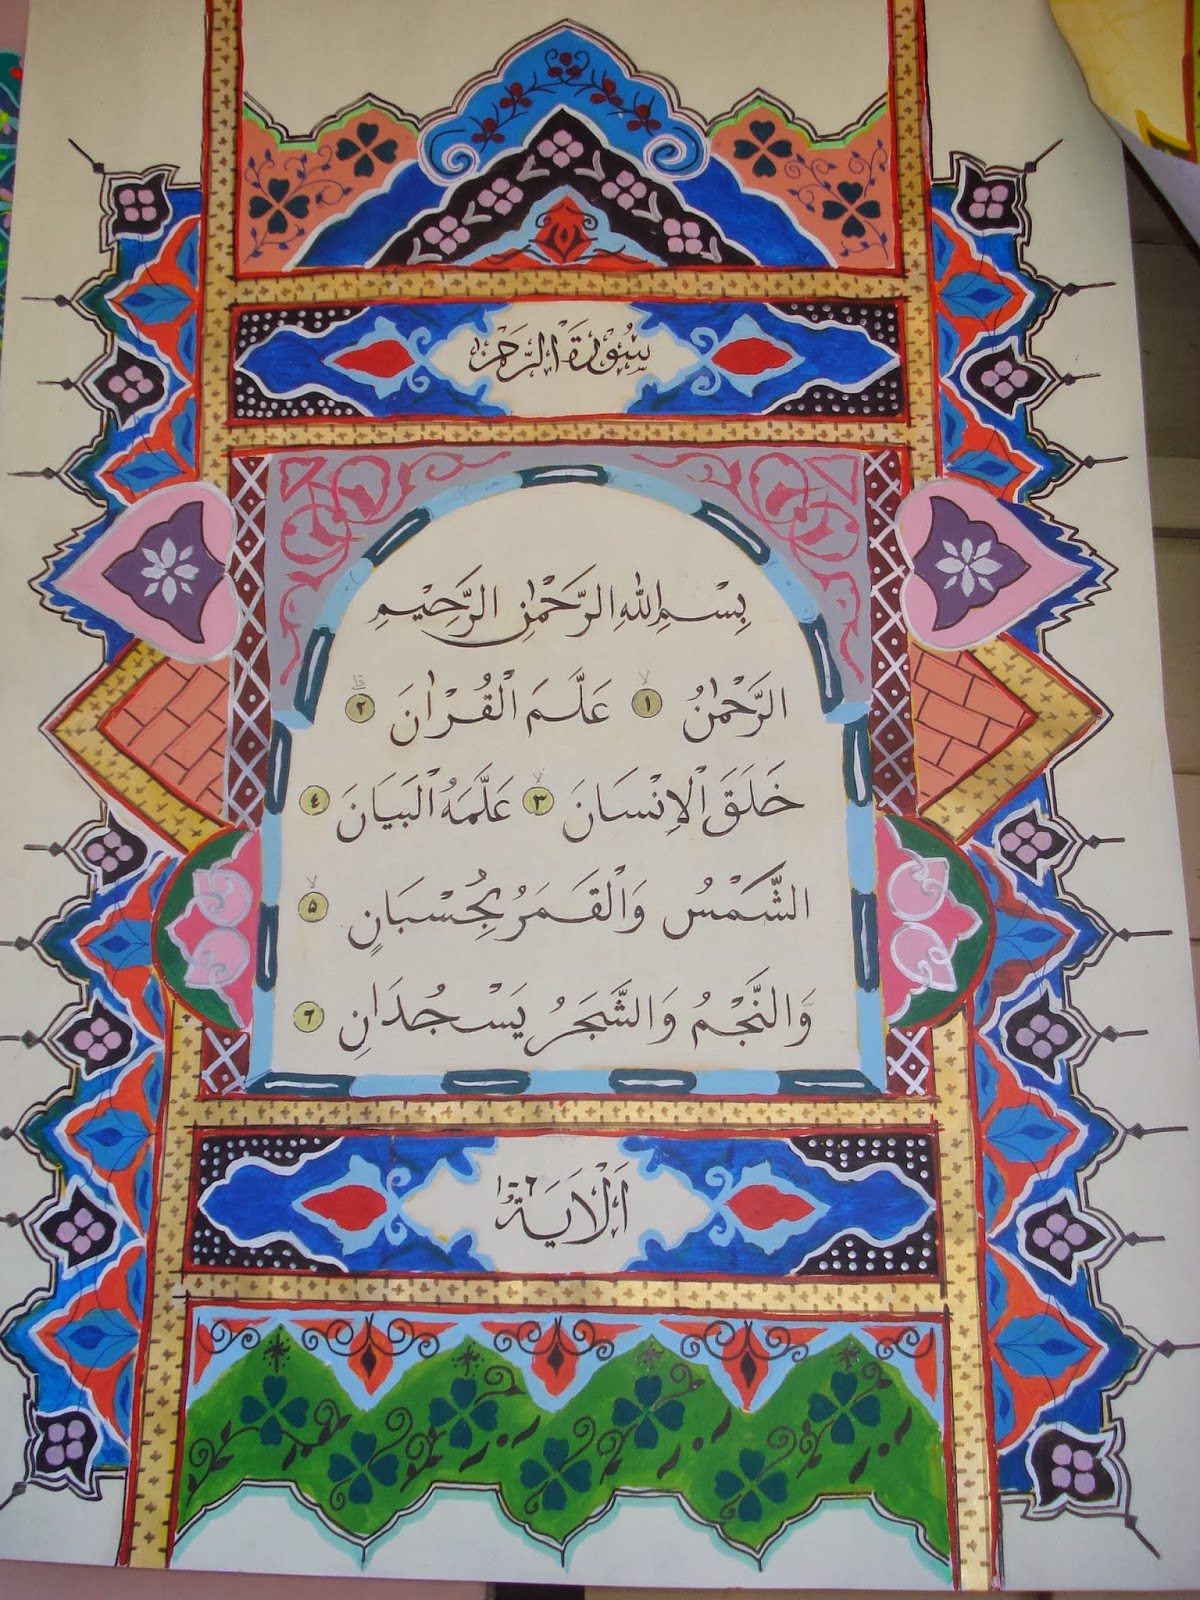 سُوْرَةُ الرَّحْمٰن
بِسْمِ اللهِ الرَّحْمٰنِ الرَّحِيْمِ
الرَّحْمٰنُ ۙ ١ عَلَّمَ الْقُرْاٰنَ ۗ ٢
خَلَقَ الْاِنْسَانَ ۙ ٣ عَلَّمَهُ الْبَيَانَ ٤
الشَّمْسُ وَالْقَمَرُ بِحُسْبَانٍ ۙ ٥
وَالنَّجْمُ وَالشَّجَرُ يَسْجُدَانِ ٦
اَلْاَيَةُ ٦-١